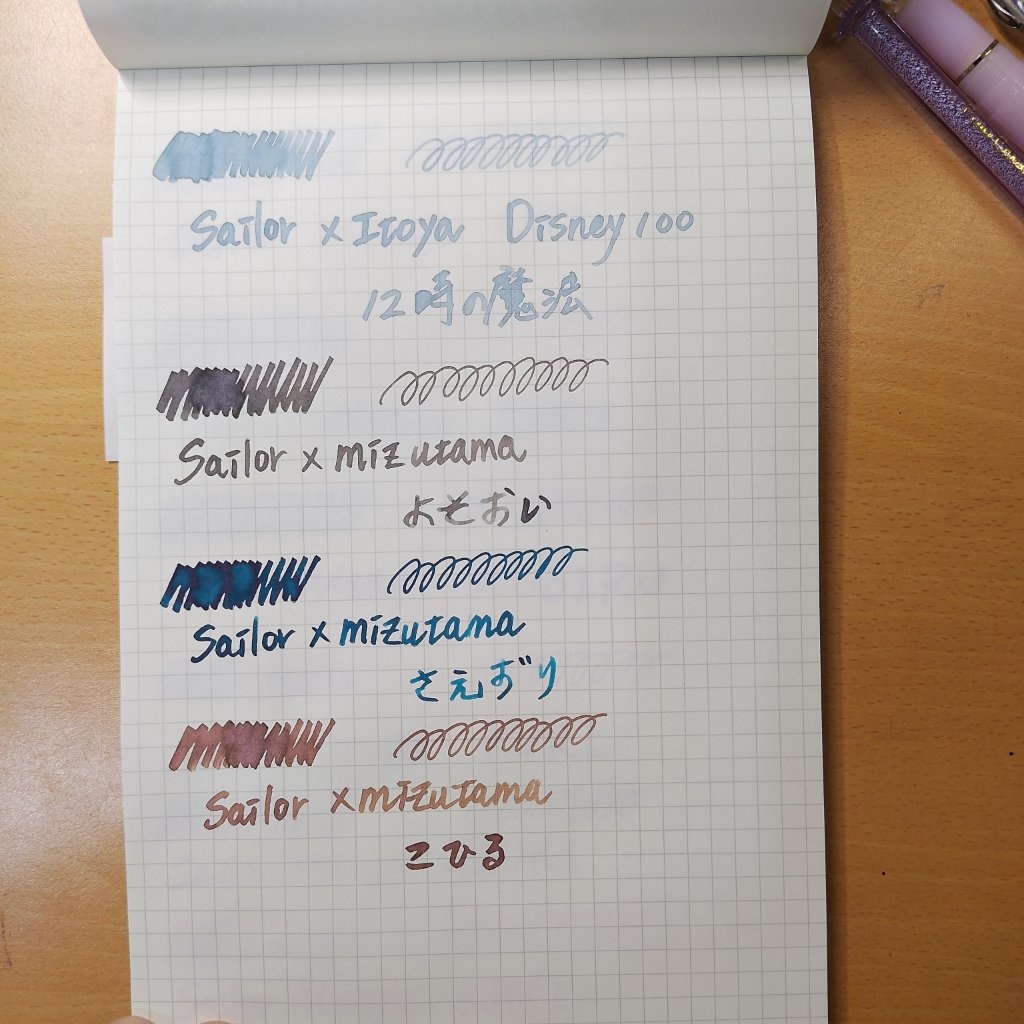 Sailor × Itoya Disney 100
12時の魔法
Sailor × mizutama
よそおい
Sailor × mizutama
さえずり
Sailor × mizutama
こひる